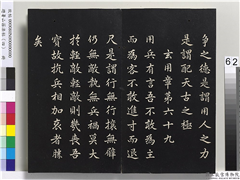 爭之德是謂用人之力
是謂配天古之極
玄用章第六十九
用兵有言吾不敢為主
而為客不敢進寸而退
尺是謂行無行攘無臂
仍無敵執無兵禍莫大
於輕敵輕敵則幾喪吾
寶故抗兵相加哀者勝
矣
62